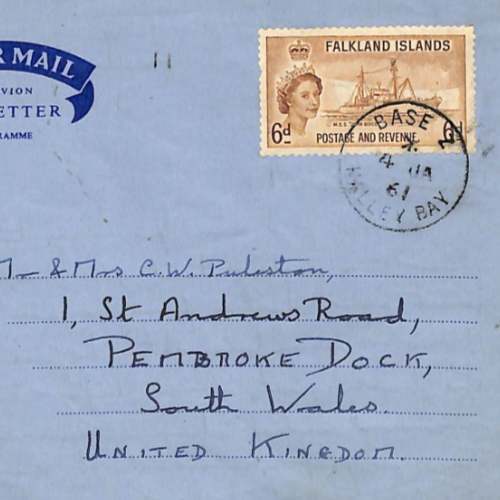 R MAIL
VION
ETTER
RAMME
11
FALKLAND ISLANDS
6d
6d
POSTAGE AND REVENUE
BASE Z
4 JA
61
HALLEY BAY
Mr & Mrs C.W. Puleston,
1, St Andrews Road,
PEMBROKE DOCK,
South Wales.
UNITED KINGDOM.